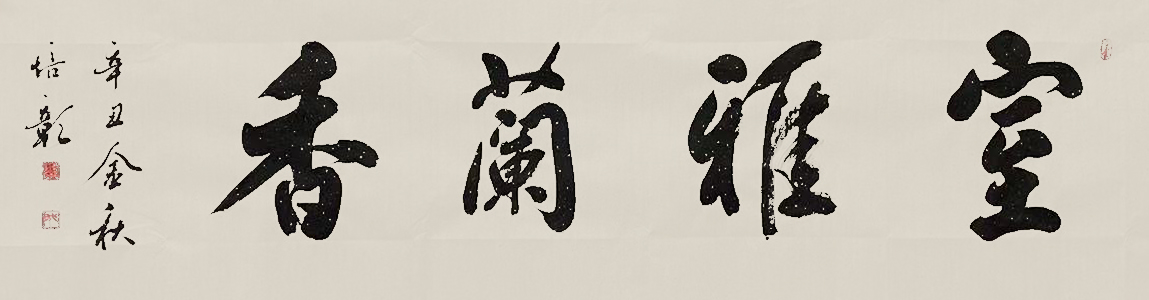 室雅蘭香
辛丑金秋
培彰